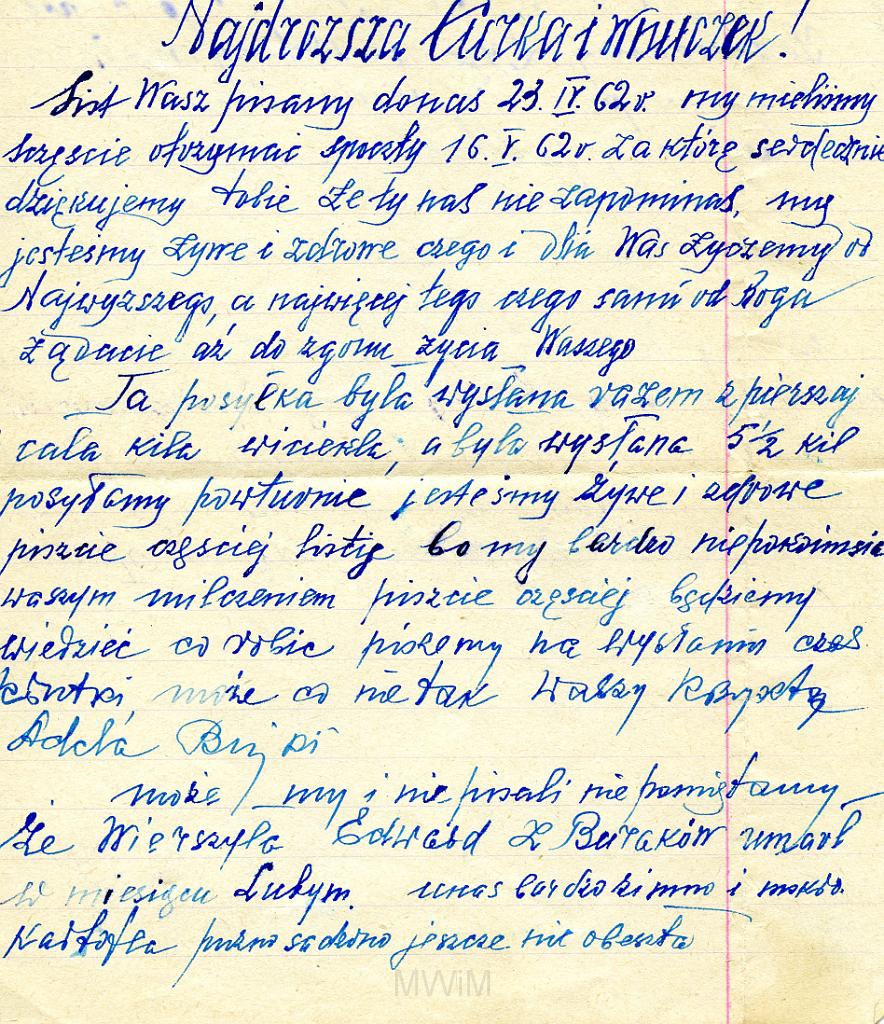 Najdrozsza Curka i Wnuczek!
List Wasz pisany donas 23. IV. 62r. my mielismy
sczęscie otrzymać spoczty 16. V. 62r. Za którę serdecznie
dziękujemy tobie że ty nas nie zapominas, my
jestesmy żywe i zdrowe czego i dla Was życzemy od
Najwyzszego, a najwięcej tego czego sami od Boga
żądacie aż do zgonu życia Waszego
Ta posyłka była wysłana razem z pierszaj
cała kiła wiciekła, a była wysłana 5½ kil
posyłamy powturnie jesteśmy żywe i zdrowe
piszcie częsciej listy bo my bardzo niepokoimsie
waszym milczeniem piszcie częsciej będziemy
wiedzieć co robic piszemy na wysłaniu czas
krutki, może co nie tak Waszy
Adela
może my i nie pisali nie pamiętamy
że Wierszyła Edward z Buraków umarł
w miesięcu Lutym. unas bardzo zimno i mokro.
Kartofla puzno sadzono jeszcze nie obeszła
MWiM